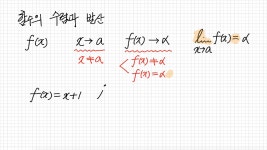 함수의 수렴과 발산
f(x) x → a f(x) → α lim x→a f(x) = α
x ≠ a f(x) ≠ α
f(x) = α
f(x) = x+1